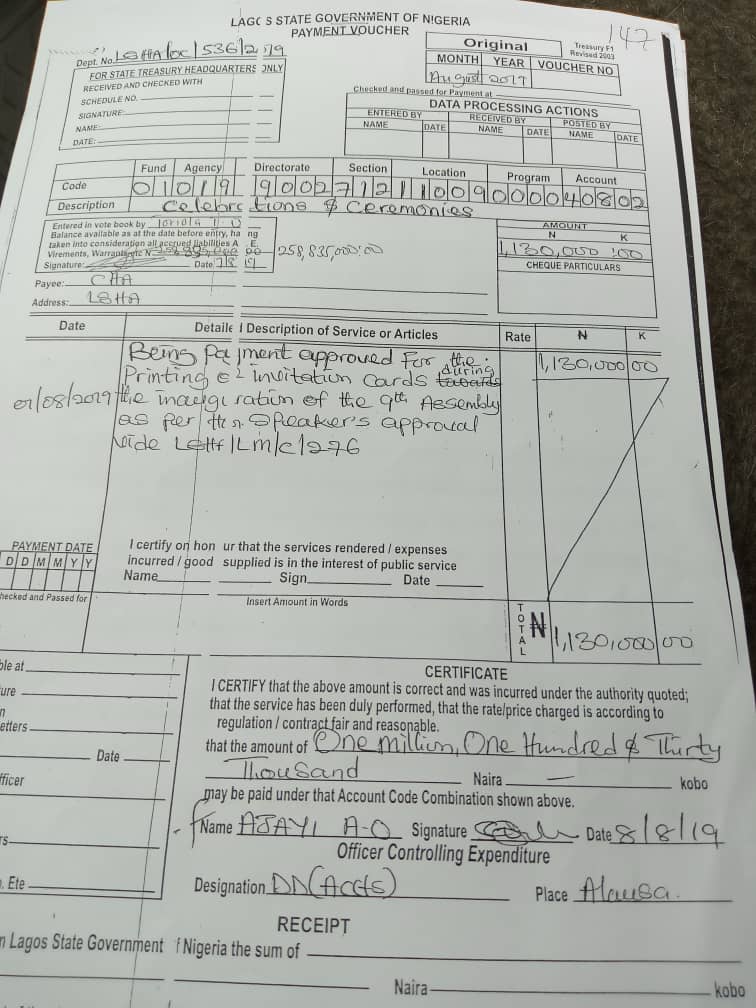 147
LAGOS STATE GOVERNMENT OF NIGERIA
PAYMENT VOUCHER
Treasury F1
Revised 2003
Original
MONTH YEAR VOUCHER NO
August 2019
Dept. No. LSHA/OC/536/2019
FOR STATE TREASURY HEADQUARTERS ONLY
RECEIVED AND CHECKED WITH
SCHEDULE NO.
SIGNATURE:
NAME:
DATE:
Checked and passed for Payment at
DATA PROCESSING ACTIONS
ENTERED BY RECEIVED BY POSTED BY
NAME DATE NAME DATE NAME DATE
Fund Agency Directorate Section Location Program Account
Code
Description Celebrations & Ceremonies
Entered in vote book by
Balance available as at the date before entry, ha ng
taken into consideration all accrued liabilities A .E.
Virements, Warrants, etc N
258,835,000:00
Signature: Date
AMOUNT
N K
1,130,000 :00
CHEQUE PARTICULARS
Payee: CHA
Address: LSHA
Date Detaile l Description of Service or Articles Rate N K
Being Payment approved for the
during
Printing of invitation cards towards
01/08/2019 the inauguration of the 9th Assembly
as per the Speaker's approval
vide
1,130,000 00
PAYMENT DATE
D D M M Y Y
I certify on hon ur that the services rendered / expenses
incurred / good supplied is in the interest of public service
Name Sign. Date
hecked and Passed for
Insert Amount in Words
TOTAL ₦ 1,130,000 00
ble at
ure
n
etters
Date
fficer
rs
. Ete
CERTIFICATE
I CERTIFY that the above amount is correct and was incurred under the authority quoted;
that the service has been duly performed, that the rate/price charged is according to
regulation / contract fair and reasonable.
that the amount of One million, One Hundred & Thirty
Thousand Naira — kobo
may be paid under that Account Code Combination shown above.
Name AJAYI A-O Signature Date 8/8/19
Officer Controlling Expenditure
Designation DD(Accts) Place Alausa.
RECEIPT
n Lagos State Government f Nigeria the sum of
Naira kobo